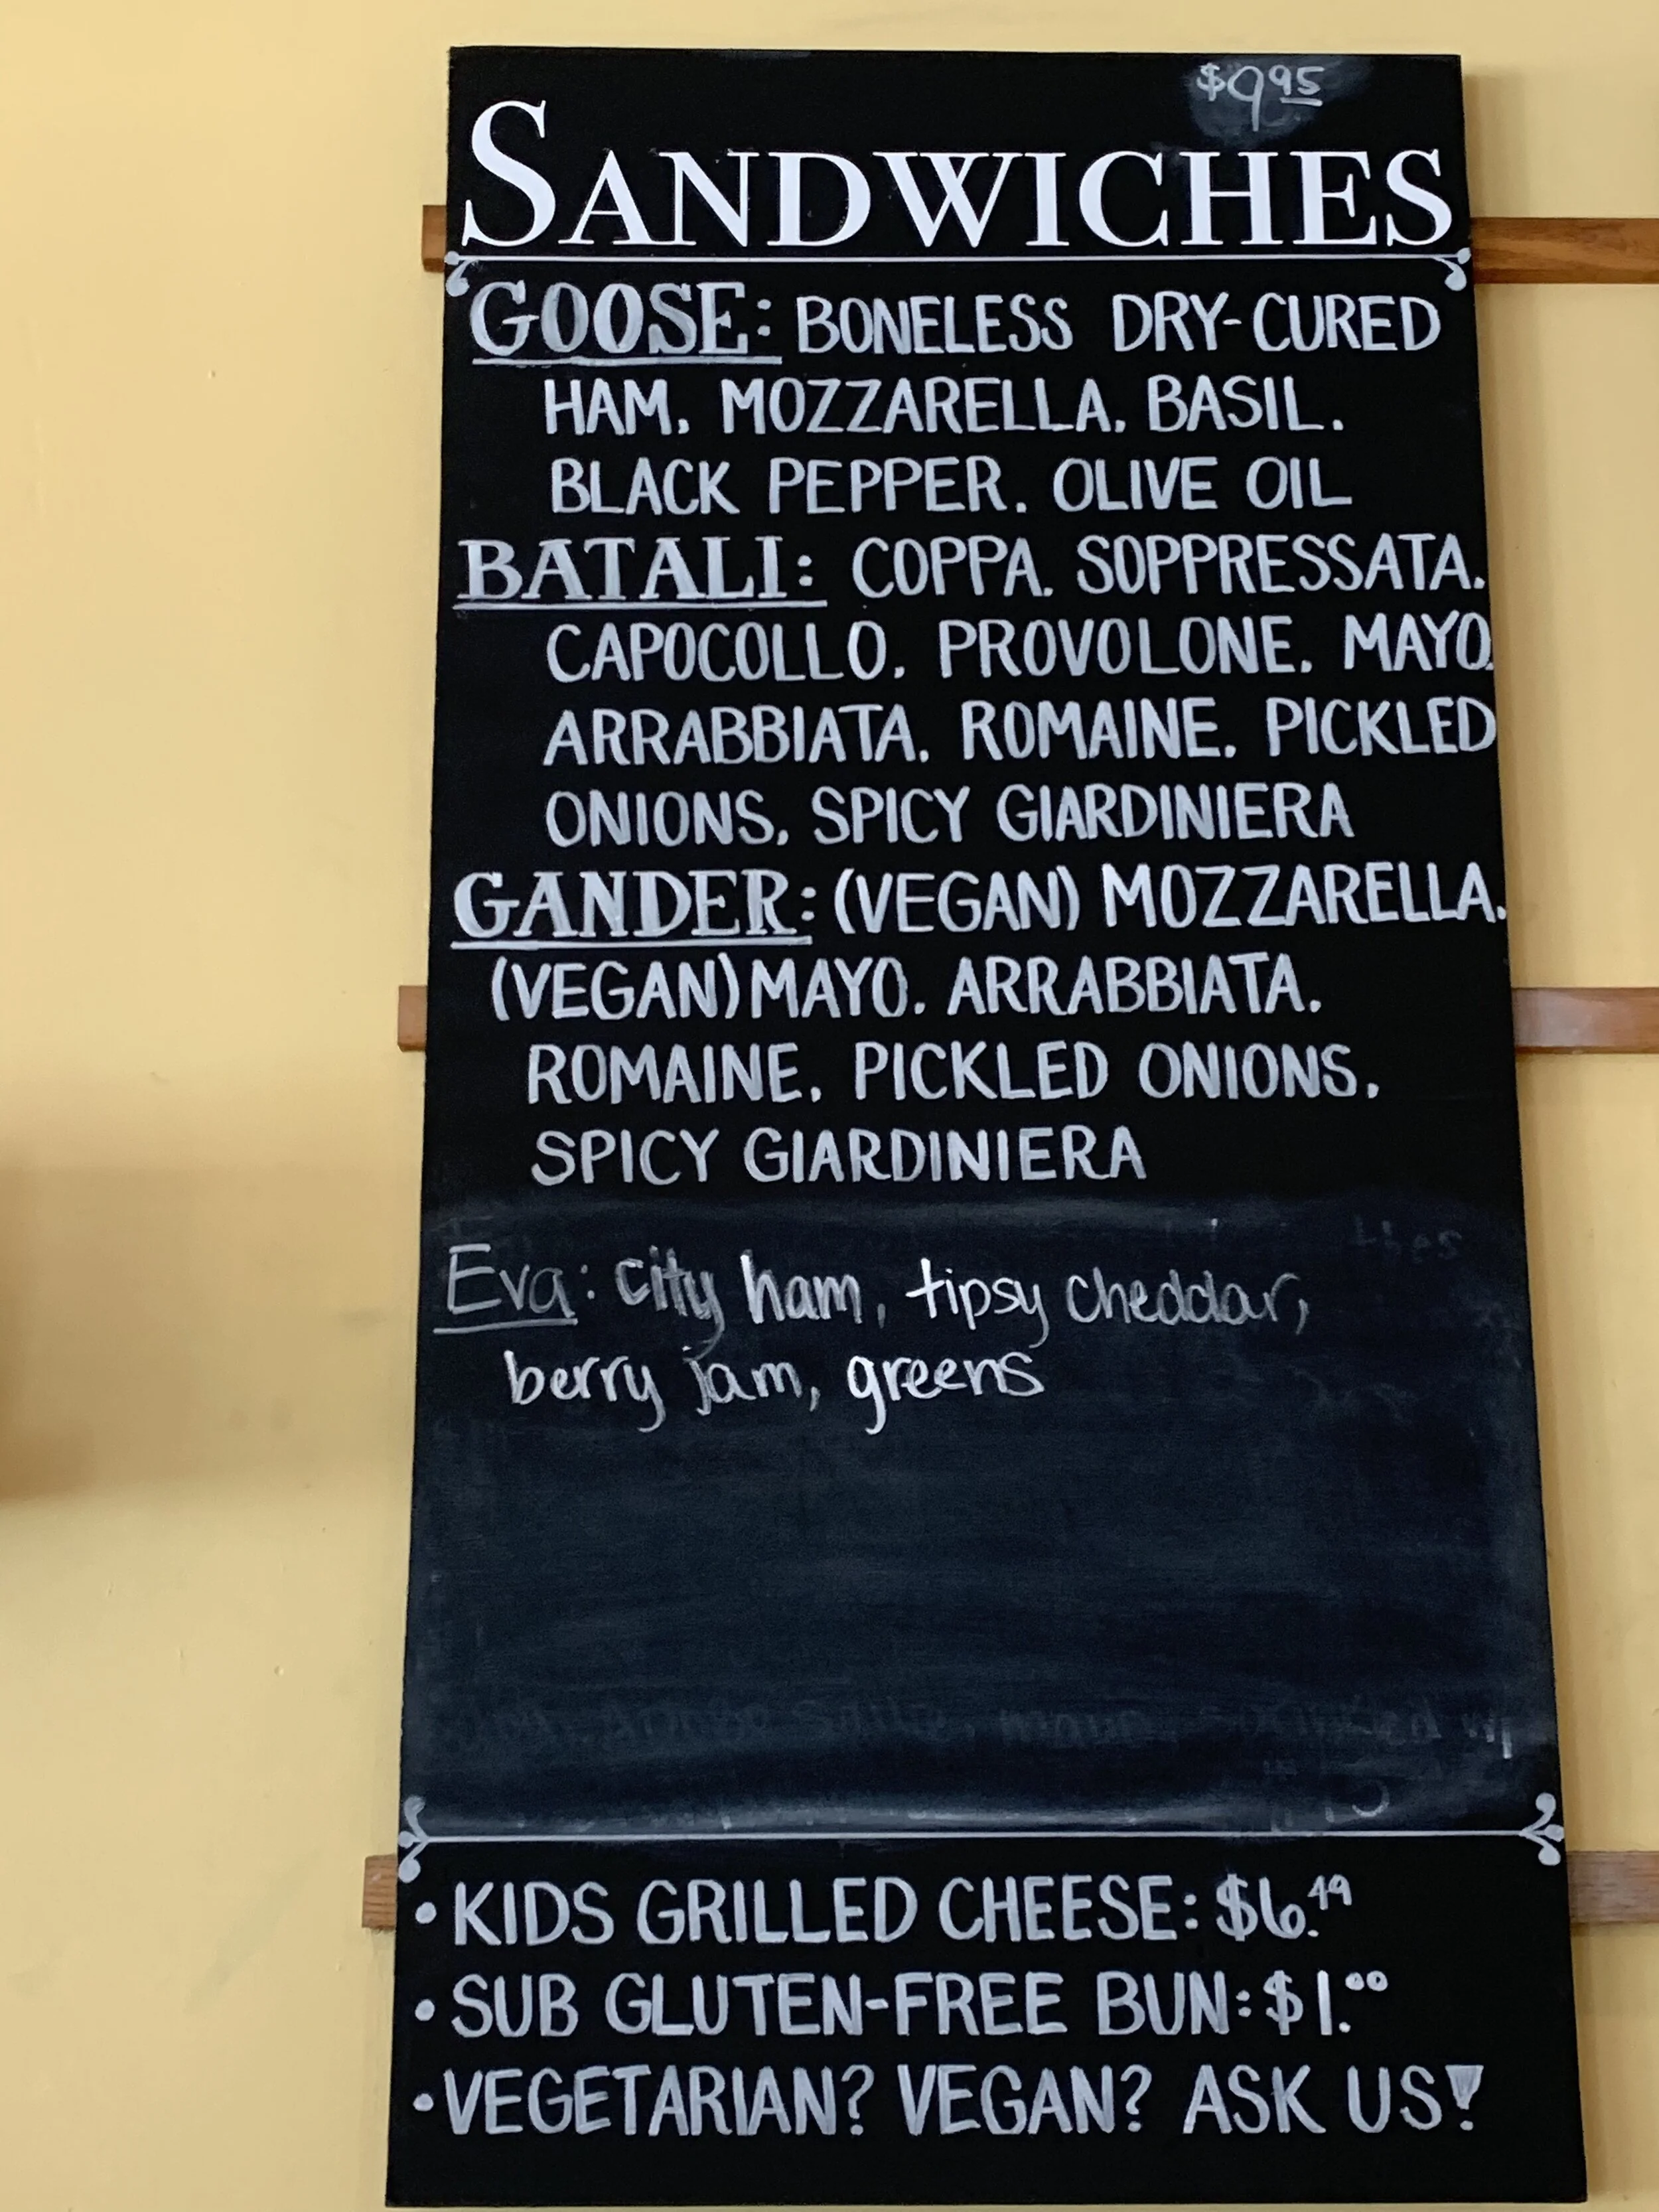 $9.95
SANDWICHES
GOOSE: BONELESS DRY-CURED
HAM, MOZZARELLA, BASIL,
BLACK PEPPER, OLIVE OIL
BATALI: COPPA, SOPPRESSATA,
CAPOCOLLO, PROVOLONE, MAYO,
ARRABBIATA, ROMAINE, PICKLED
ONIONS, SPICY GIARDINIERA
GANDER: (VEGAN) MOZZARELLA,
(VEGAN) MAYO, ARRABBIATA,
ROMAINE, PICKLED ONIONS,
SPICY GIARDINIERA
Eva: city ham, tipsy cheddar,
berry jam, greens
• KIDS GRILLED CHEESE: $6.49
• SUB GLUTEN-FREE BUN: $1.00
• VEGETARIAN? VEGAN? ASK US!